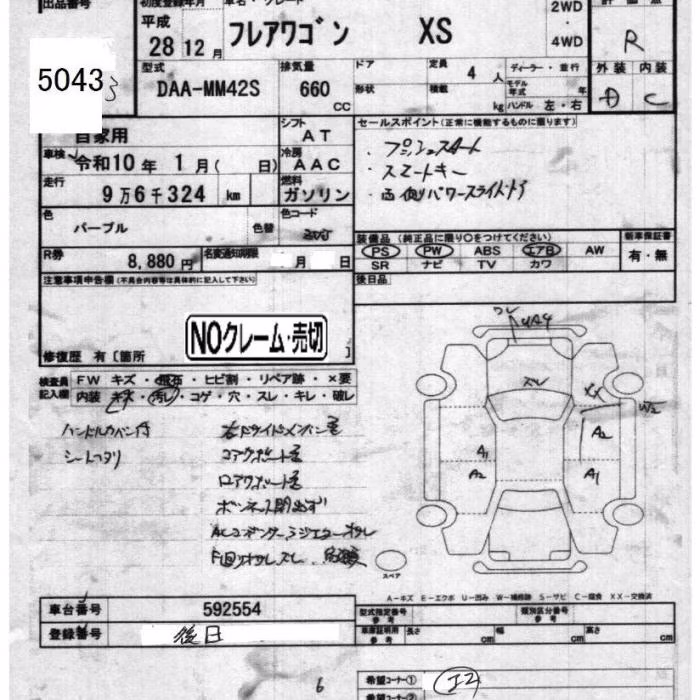 出品番号
初度登録年月
2WD
・
4WD
平成
28 12 月
フレアワゴン XS
R
5043
型式
DAA-MM42S
排気量
660
CC
ドア
定員
4 人
ディーラー・並行
形状
積載
kg
モデル年式
年
ハンドル 左・右
外装 内装
D C
自家用
シフト
AT
セールスポイント(正常に機能するものに限ります)
・プッシュスタート
・スマートキー
・両側パワースライドドア
車検
令和10 年 1 月( 日)
冷房
AAC
走行
9 万 6 千 324 km
燃料
ガソリン
色
パープル
色替
色コード
装備品 (純正品に限り○をつけてください)
PS PW ABS エアB AW
SR ナビ TV カワ
新車保証書
有・無
R券
8,880 円
名変通知期限
月 日
後日品
注意事項申告欄(不具合内容等は具体的に記入して下さい)
NOクレーム・売切
修復歴 有〔箇所 〕
検査員
記入欄
FW キズ・飛石・ヒビ割・リペア跡・×要
内装 キズ・汚レ・コゲ・穴・スレ・キレ・破レ
ハンドルカバー付
シートコスリ
右Fサイドメンバー歪
コアサポート歪
ロアサポート歪
ボンネット閉まらず
ズレ
A2
A1
A1
A2
W2
スペア
A-キズ E-エクボ U-凹み W-補修跡 S-サビ C-腐食 XX-交換済
車台番号
592554
登録番号
後日
型式指定番号
参考
類別区分番号
参考
車庫証明用
参考
長さ cm
幅 cm
高さ cm
希望コーナー①
希望コーナー②
6